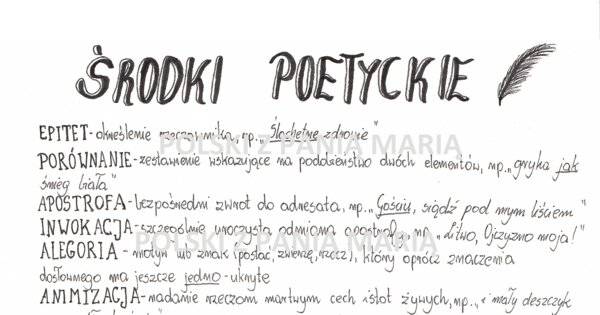 ŚRODKI POETYCKIE
EPITET - określenie rzeczownika, np. „Ślachetne zdrowie"
POLSKI Z PANIA MARIĄ
PORÓWNANIE - zestawienie wskazujące na podobieństwo dwóch elementów, np. „gryka jak
śnieg biała"
APOSTROFA - bezpośredni zwrot do adresata, np. „Gościu, siądź pod mym liściem"
INWOKACJA - szczególnie uroczysta odmiana apostrofy, np. „Litwo, Ojczyzno moja!"
POLSKI Z PANIA MARIĄ
ALEGORIA - motyw lub znak (postać, zwierzę, rzecz), który oprócz znaczenia
dosłownego ma jeszcze jedno - ukryte
ANIMIZACJA - nadanie rzeczom martwym cech istot żywych, np. „i mały deszczyk